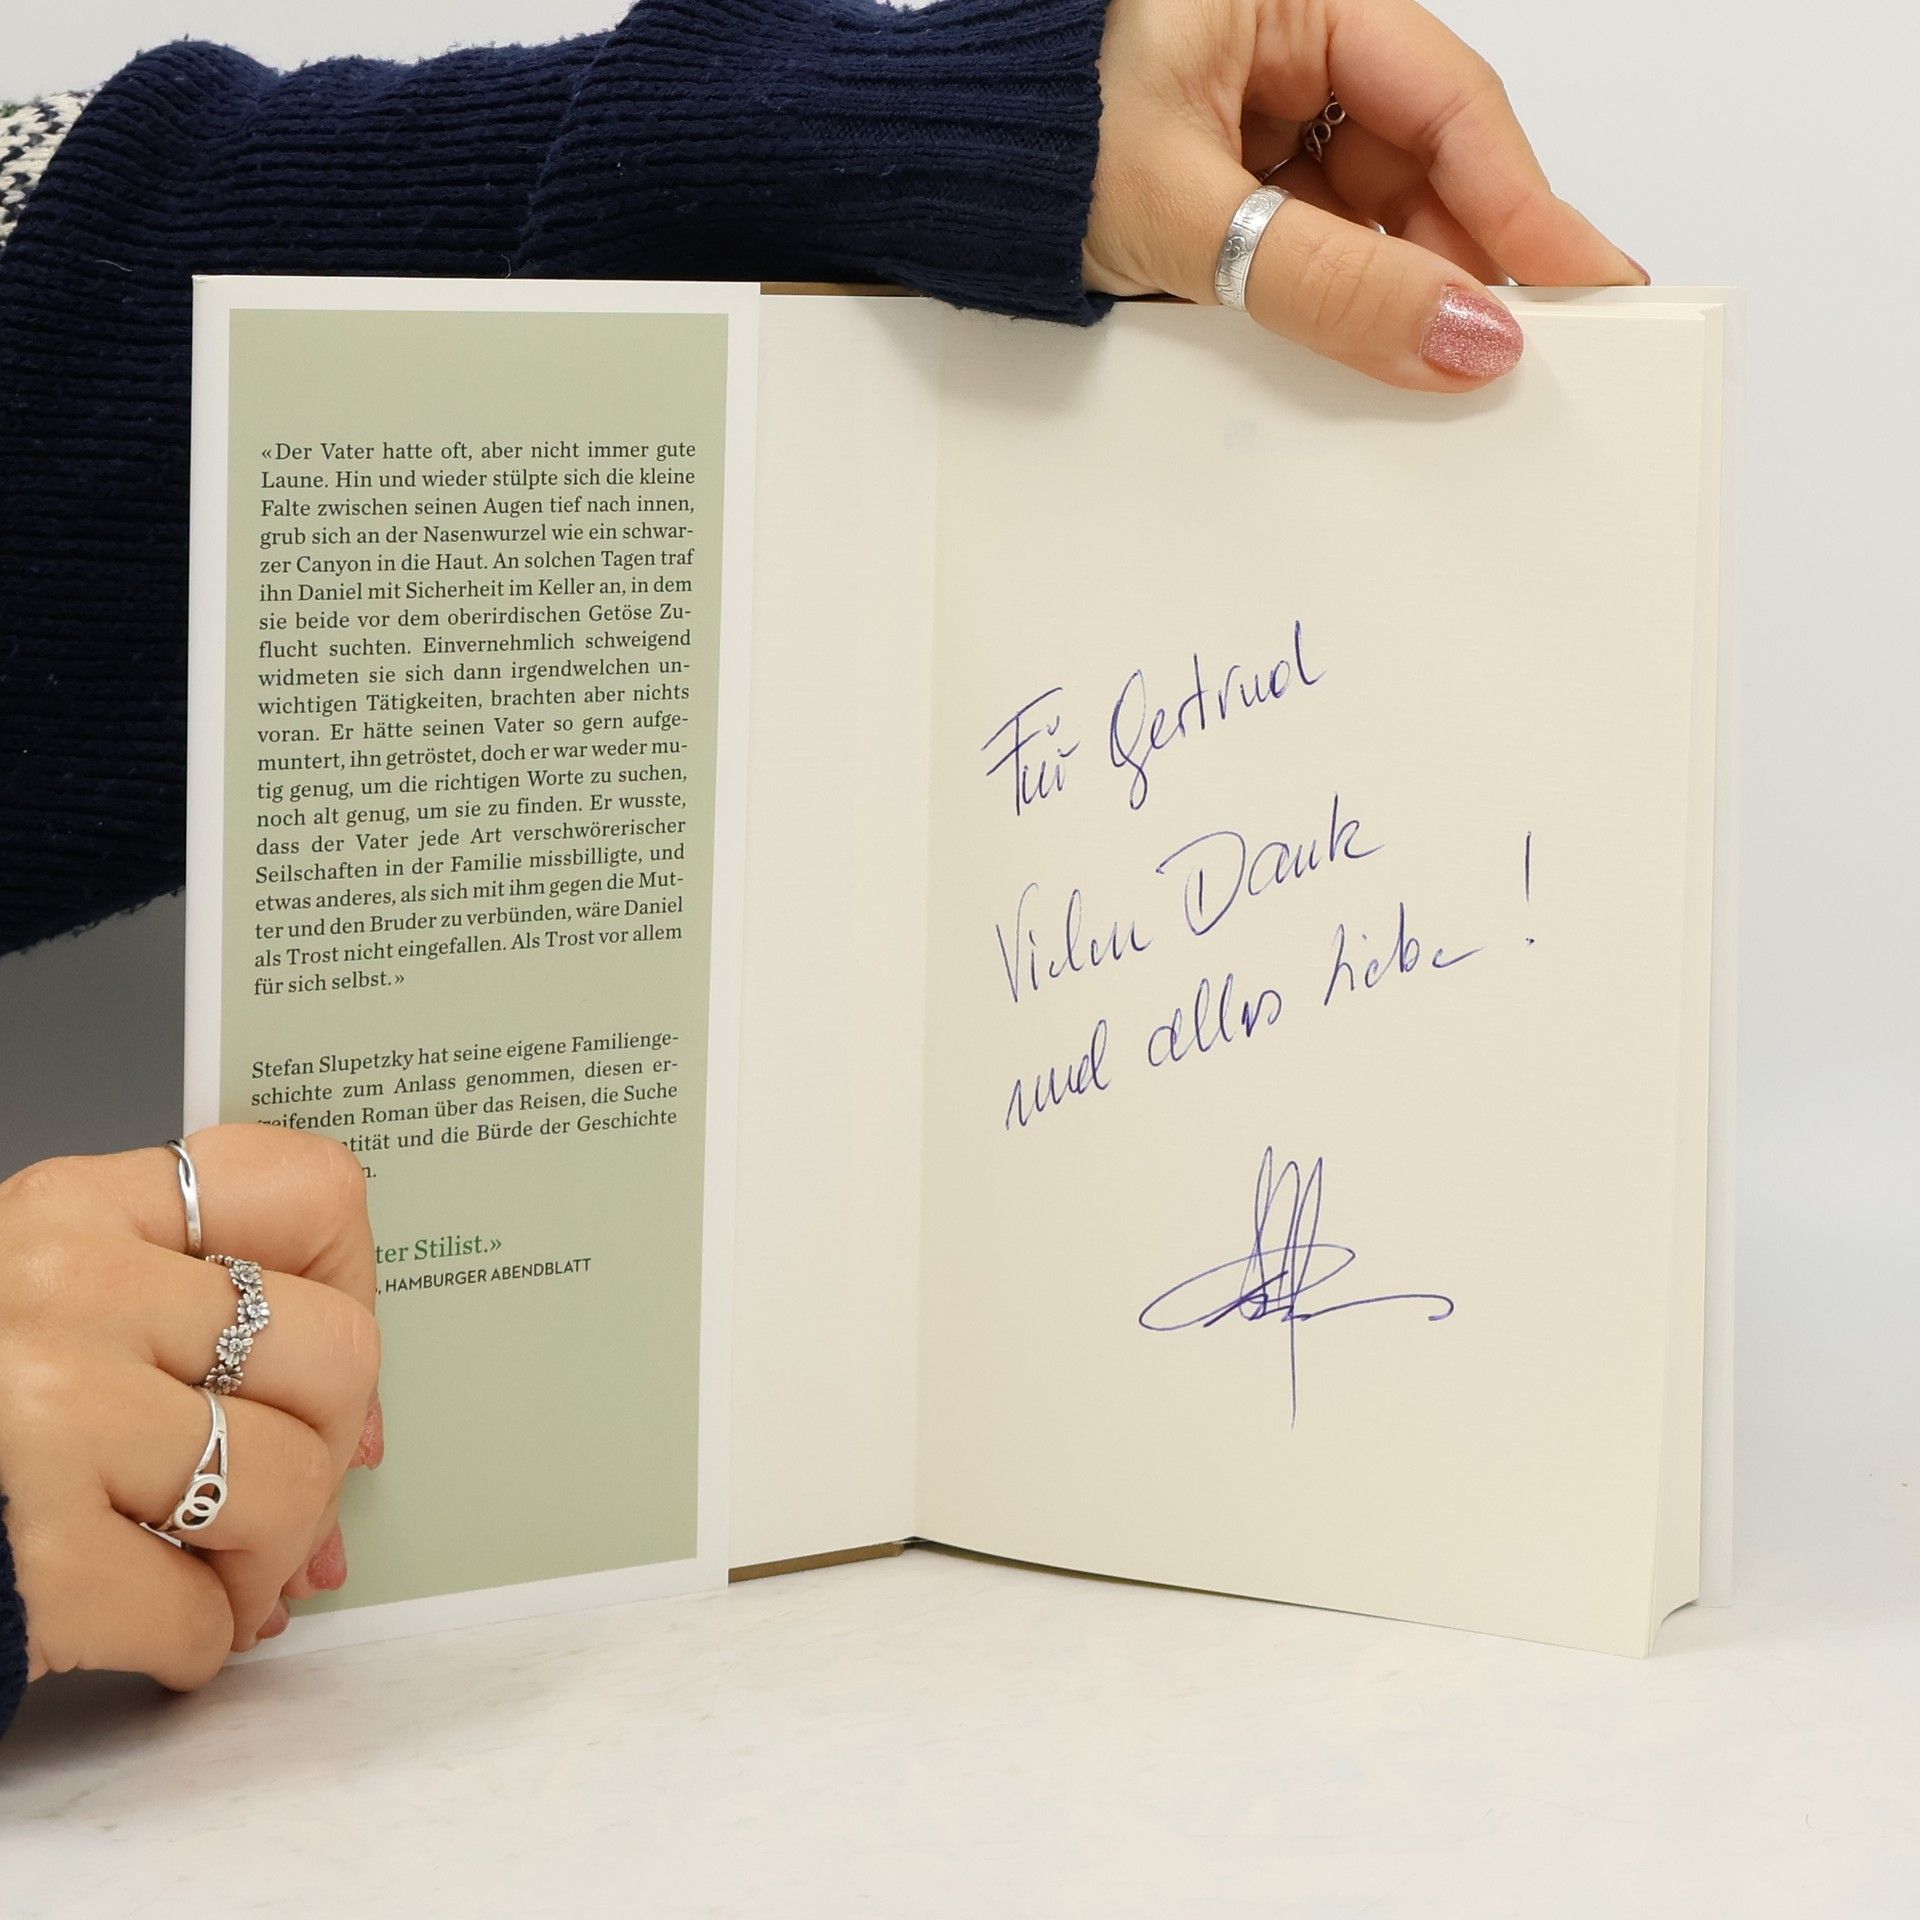 «Der Vater hatte oft, aber nicht immer gute
Laune. Hin und wieder stülpte sich die kleine
Falte zwischen seinen Augen tief nach innen,
grub sich an der Nasenwurzel wie ein schwar-
zer Canyon in die Haut. An solchen Tagen traf
ihn Daniel mit Sicherheit im Keller an, in dem
sie beide vor dem oberirdischen Getöse Zu-
flucht suchten. Einvernehmlich schweigend
widmeten sie sich dann irgendwelchen un-
wichtigen Tätigkeiten, brachten aber nichts
voran. Er hätte seinen Vater so gern aufge-
muntert, ihn getröstet, doch er war weder mu-
tig genug, um die richtigen Worte zu suchen,
noch alt genug, um sie zu finden. Er wusste,
dass der Vater jede Art verschwörerischer
Seilschaften in der Familie missbilligte, und
etwas anderes, als sich mit ihm gegen die Mut-
ter und den Bruder zu verbünden, wäre Daniel
als Trost nicht eingefallen. Als Trost vor allem
für sich selbst.»
Stefan Slupetzky hat seine eigene Familienge-
schichte zum Anlass genommen, diesen er-
greifenden Roman über das Reisen, die Suche
tität und die Bürde der Geschichte
n.
ter Stilist.»
, HAMBURGER ABENDBLATT
Für Gertrud
Vielen Dank
und alles Liebe!